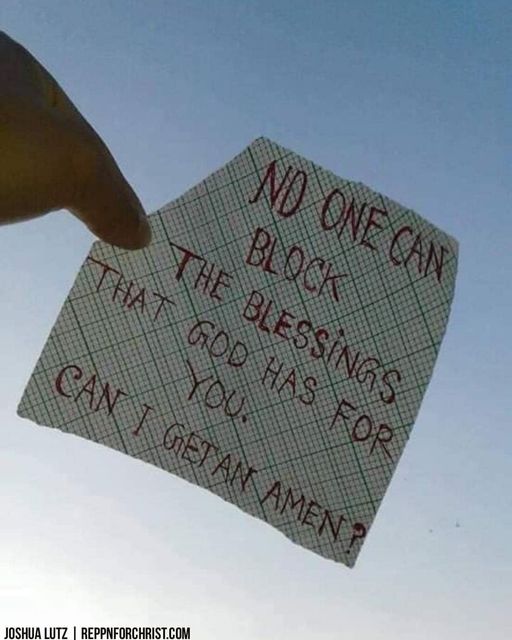 NO ONE CAN
BLOCK
THE BLESSiNGS
THAT GOD HAS FOR
YOU.
CAN I GET AN AMEN?
JOSHUA LUTZ | REPPNFORCHRIST.COM